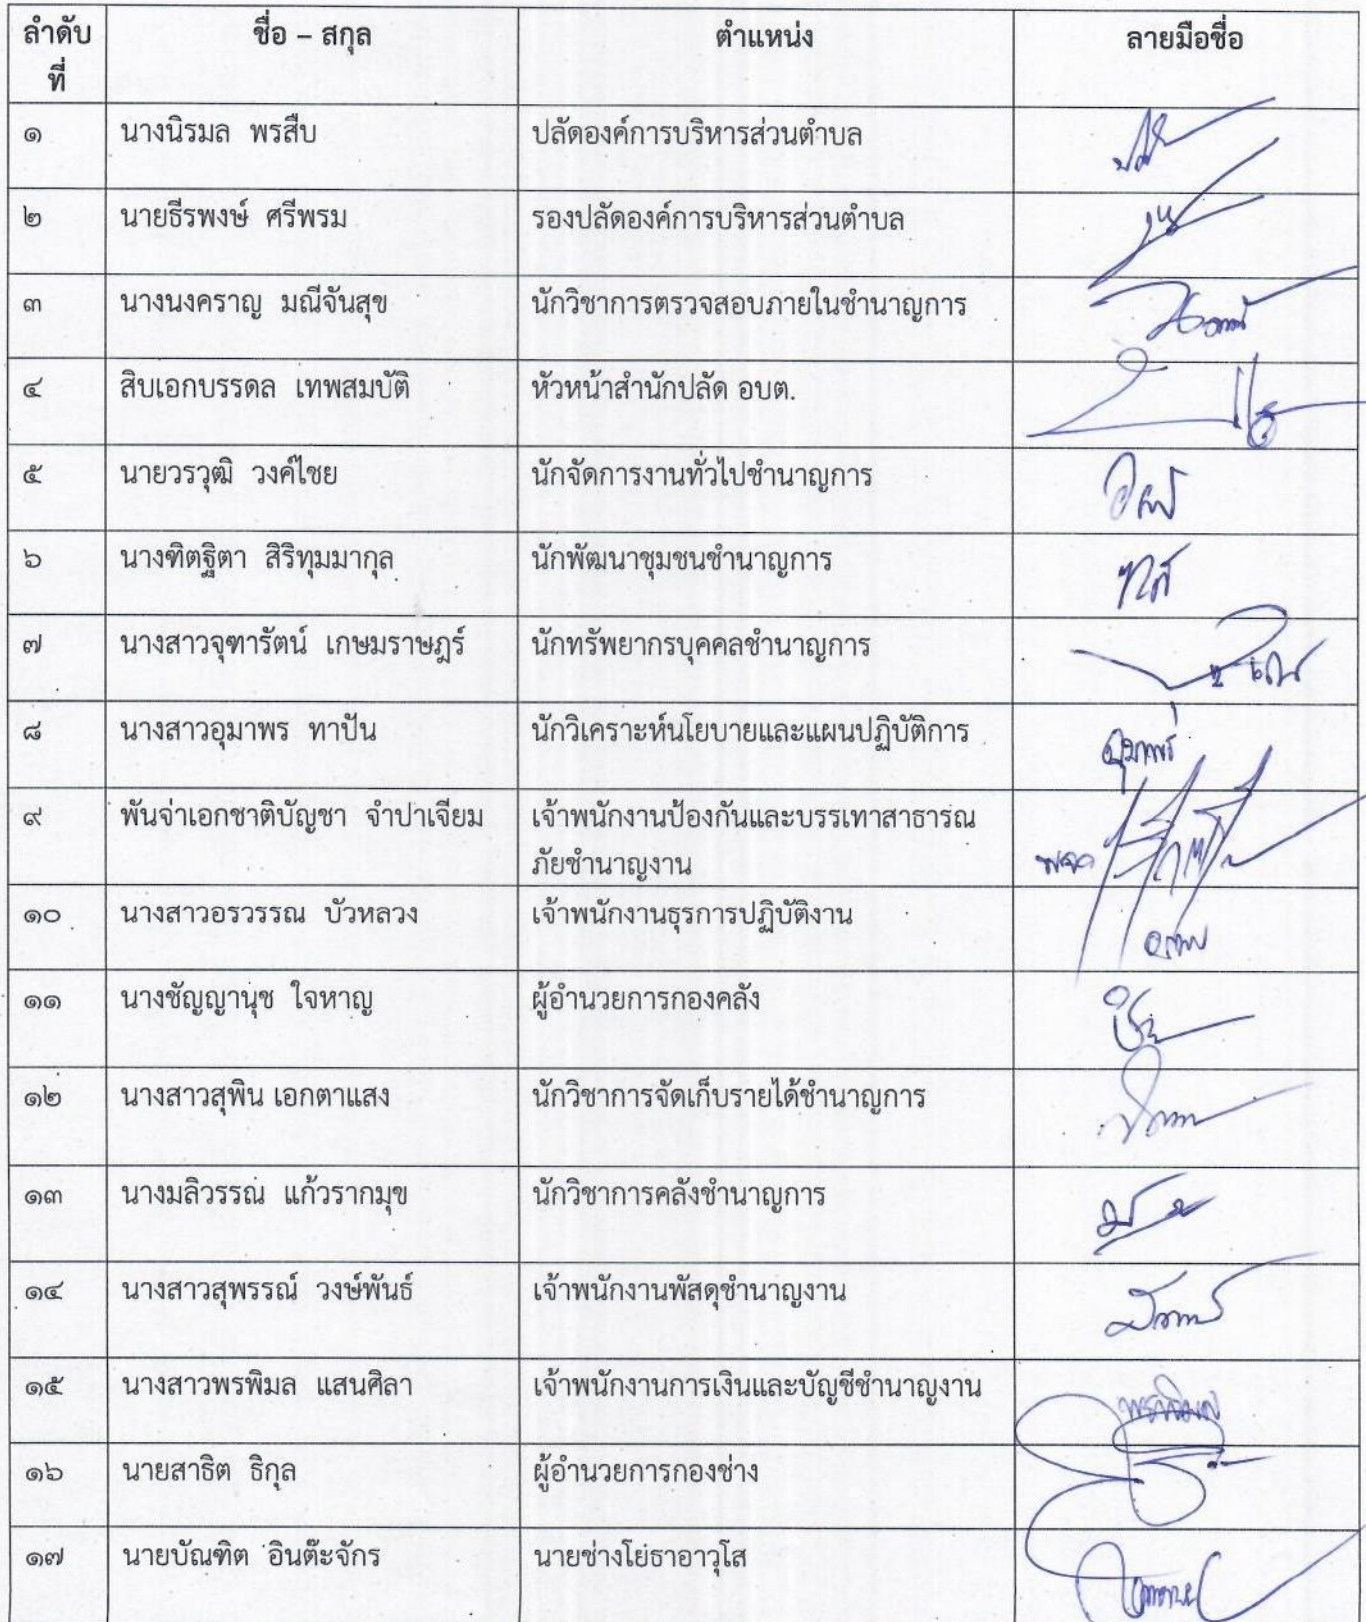 ลำดับ ชื่อ – สกุล ตำแหน่ง ลายมือชื่อ
ที่
๑ นางนิรมล พรสืบ ปลัดองค์การบริหารส่วนตำบล
๒ นายธีรพงษ์ ศรีพรม รองปลัดองค์การบริหารส่วนตำบล
๓ นางนงคราญ มณีจันสุข นักวิชาการตรวจสอบภายในชำนาญการ
๔ สิบเอกบรรดล เทพสมบัติ หัวหน้าสำนักปลัด อบต.
๕ นายวรวุฒิ วงค์ไชย นักจัดการงานทั่วไปชำนาญการ
๖ นางฑิตฐิตา สิริทุมมากุล นักพัฒนาชุมชนชำนาญการ
๗ นางสาวจุฑารัตน์ เกษมราษฎร์ นักทรัพยากรบุคคลชำนาญการ
๘ นางสาวอุมาพร ทาปัน นักวิเคราะห์นโยบายและแผนปฏิบัติการ อุมาพร
๙ พันจ่าเอกชาติบัญชา จำปาเจียม เจ้าพนักงานป้องกันและบรรเทาสาธารณ
ภัยชำนาญงาน
๑๐ นางสาวอรวรรณ บัวหลวง เจ้าพนักงานธุรการปฏิบัติงาน
๑๑ นางชัญญานุช ใจหาญ ผู้อำนวยการกองคลัง
๑๒ นางสาวสุพิน เอกตาแสง นักวิชาการจัดเก็บรายได้ชำนาญการ
๑๓ นางมลิวรรณ แก้วรากมุข นักวิชาการคลังชำนาญการ
๑๔ นางสาวสุพรรณ์ วงษ์พันธ์ เจ้าพนักงานพัสดุชำนาญงาน
๑๕ นางสาวพรพิมล แสนศิลา เจ้าพนักงานการเงินและบัญชีชำนาญงาน พรพิมล
๑๖ นายสาธิต ธิกุล ผู้อำนวยการกองช่าง
๑๗ นายบัณฑิต อินต๊ะจักร นายช่างโยธาอาวุโส